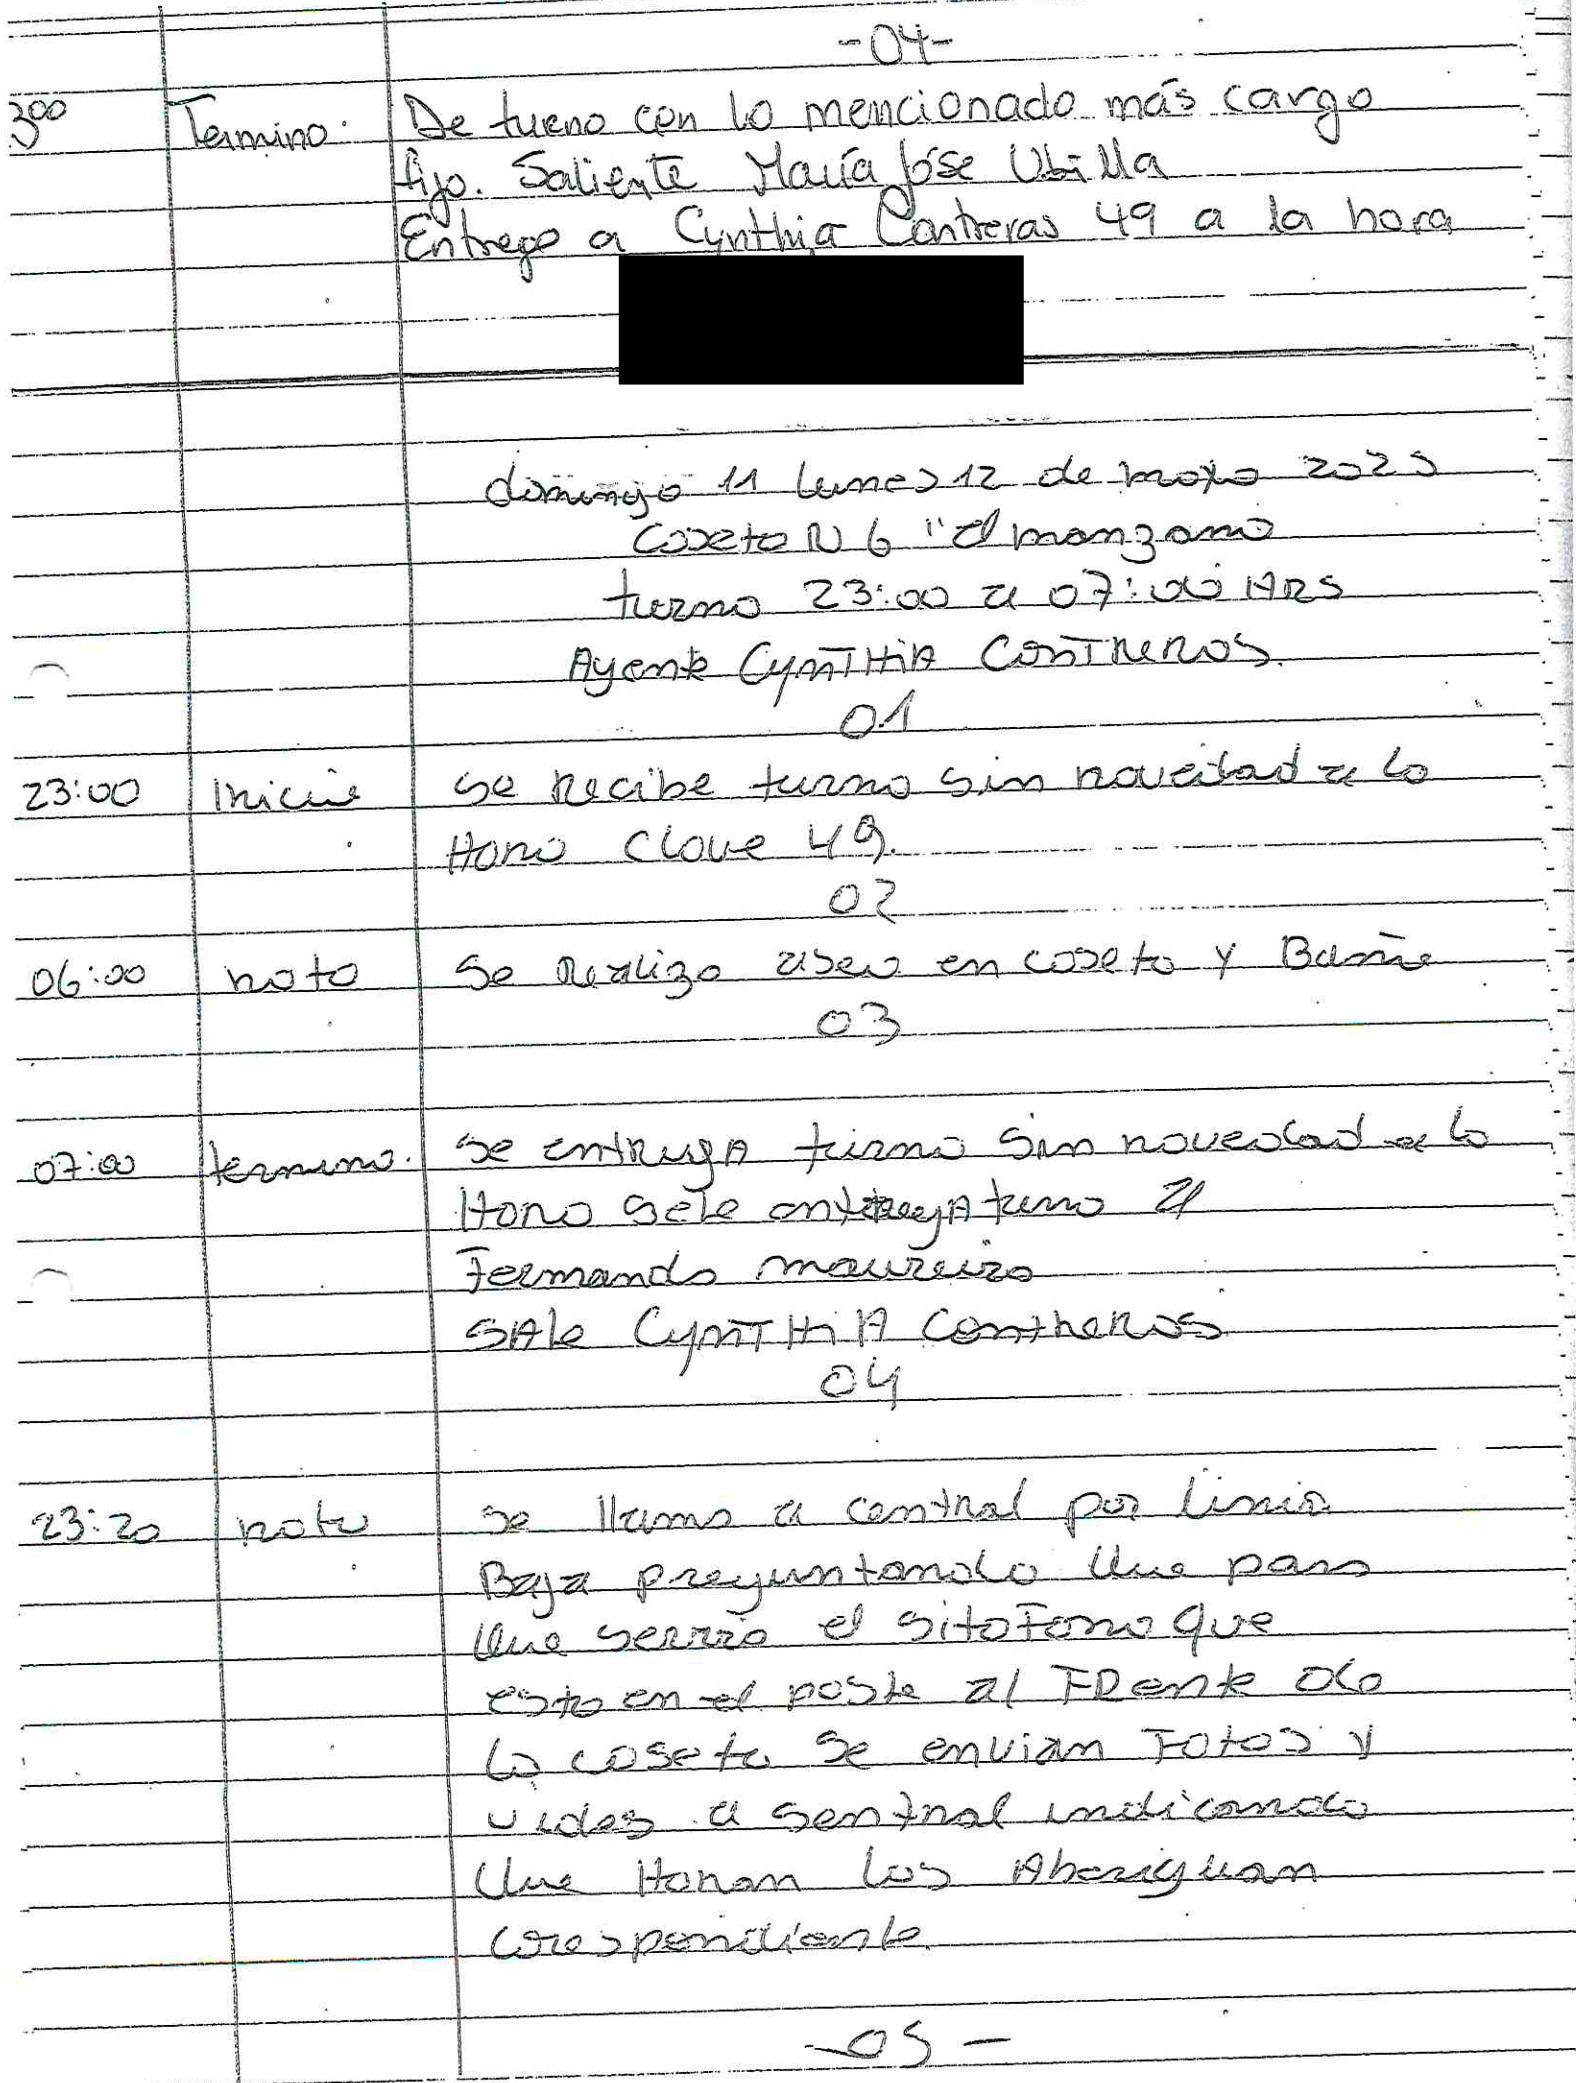 -04-
300 Termino. De tueno con lo mencionado más cargo
fijo. Saliente María José Ubilla
Entrego a Cynthia Contreras 49 a la hora
domingo 11 lunes 12 de mayo 2025
Caseta N 6 "El manzano
turno 23:00 a 07:00 HRS
Agente CynTHiA ConTReRas.
01
23:00 Inicio se Recibe turno sin novedad a la
Hora Clave 49.
02
06:00 nota Se Realiza aseo en caseta y Baño
03
07:00 termino. Se entRegA turno Sin novedad a la
Hora se le entregA turno a
Fernando maureira
SAle CynTHiA ContReRas
04
23:20 nota se llama a central por linia
Baja preguntando que paso
que serrio el sitoFono que
esta en el poste al FRente de
la caseta se envian Fotos y
a sentral indicando
que Haran los
-05-